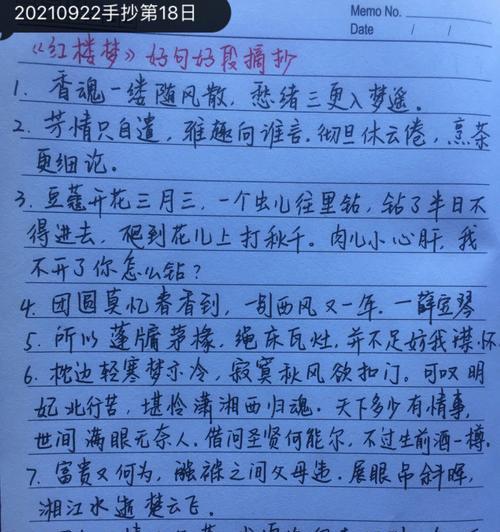 20210922手抄第18日
Memo No.
Date
《红楼梦》好句好段摘抄
1. 香魂一缕随风散，愁绪三更入梦遥。
2. 芳情只自遣，雅趣向谁言。彻旦休云倦，烹茶
更细论。
3. 豆蔻开花三月三，一个虫儿往里钻，钻了半日不
得进去，爬到花儿上打秋千。肉儿小心肝，我
不开了你怎么钻？
4. 团圆莫忆春香到，一别西风又一年。—薛宝琴
5. 所以蓬牖茅椽，绳床瓦灶，并不足妨我襟怀
6. 枕边轻寒梦亦冷，寂寞秋风欲扣门。可叹明
妃北行苦，堪怜潇湘西归魂。天下多少有情事，
世间满眼无奈人。借问圣贤何能尔，不过生前酒一樽。
7. 富贵又何为，襁褓之间父母违。展眼吊斜晖，
湘江水逝楚云飞。